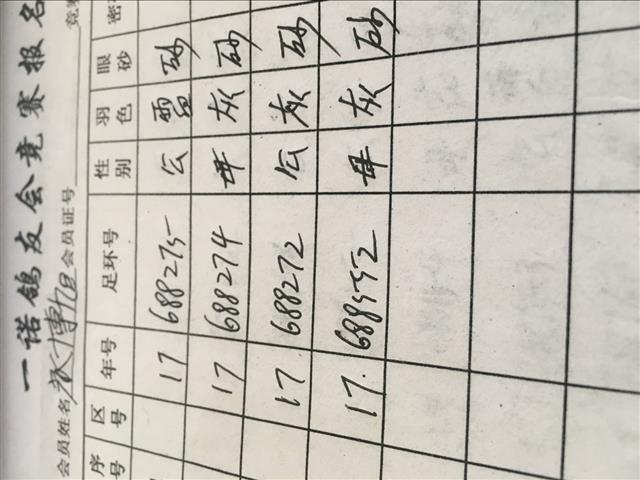 一诺鸽友会竞赛报名
会员姓名 会员证号 竞赛
序号 区号 年号 足环号 性别 羽色 眼砂 密
17 688275 公 砂
17 688274 母 灰 砂
17 688272 公 灰 砂
17. 688552 母 灰 砂